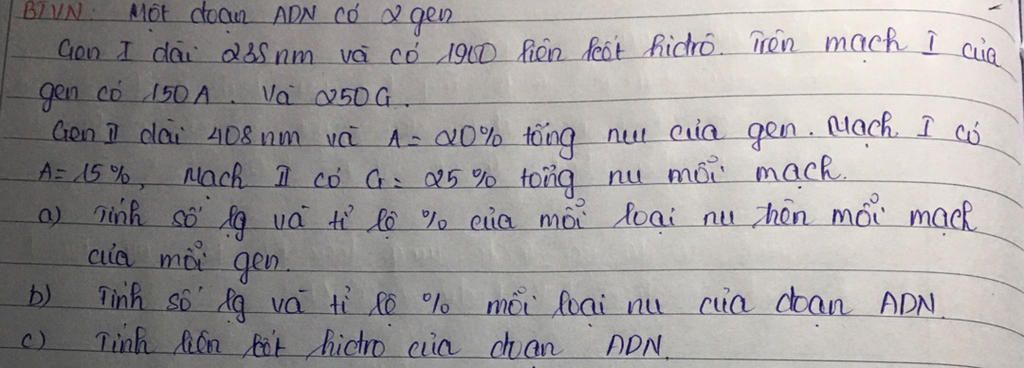 BTVN: Một đoạn ADN có 2 gen
Gen I dài 238nm và có 1900 liên kết hidrô. Trên mạch I của
gen có 150A. Và 250G.
Gen II dài 408nm và A = 20% tổng nu của gen. Mạch I có
A = 15%, Mạch II có G = 25% tổng nu mỗi mạch.
a) Tính số lg và tỉ lệ % của mỗi loại nu trên mỗi mạch
của mỗi gen.
b) Tính số lg và tỉ lệ % mỗi loại nu của đoạn ADN.
c) Tính liên kết hidro của đoạn ADN.